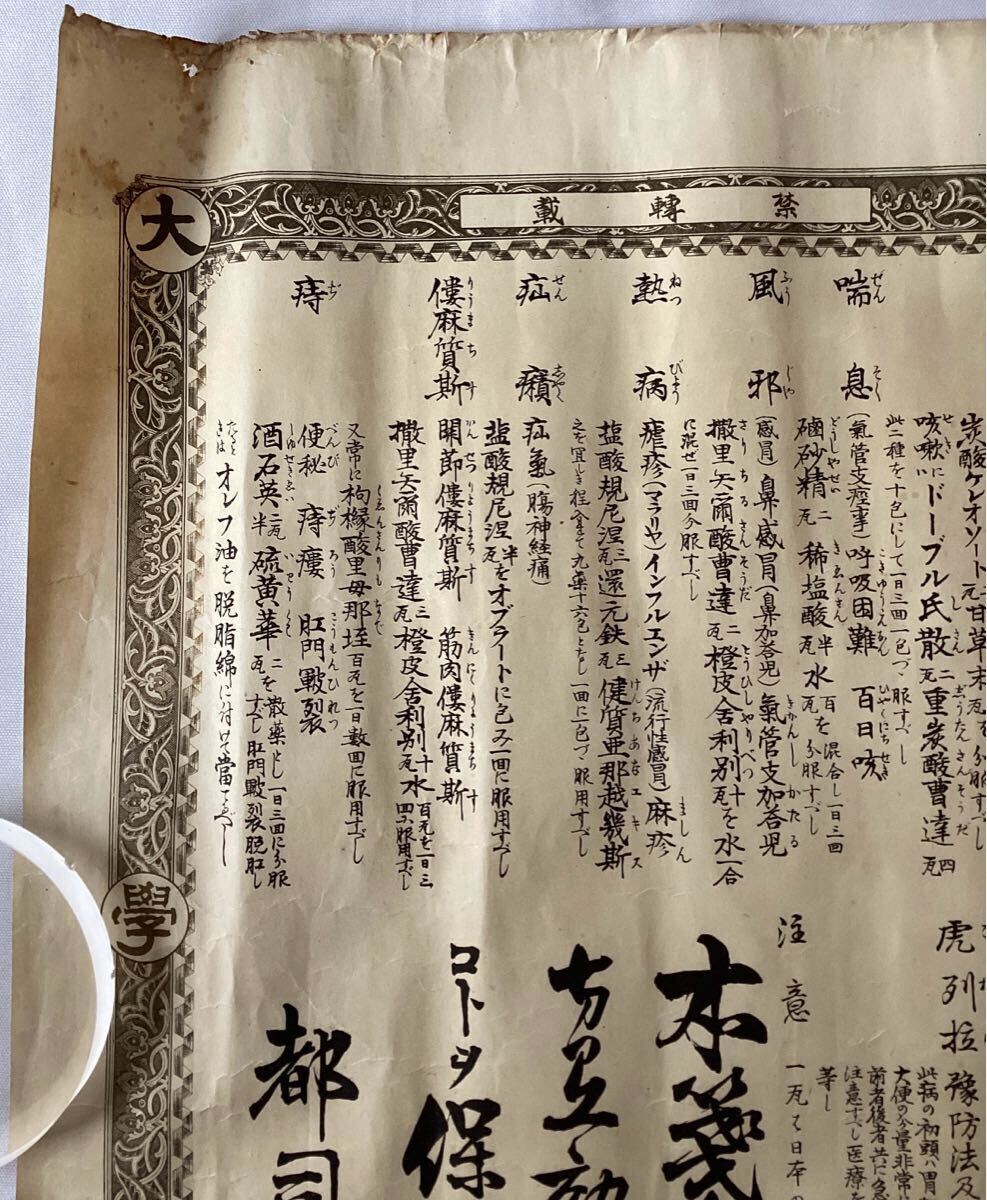 禁轉載
大
學
炭酸ケレオソート 甘草末
咳嗽にドーブル氏散二瓦重炭酸曹達四瓦
此二種を十包にして一日三回一包づゝ服すべし
喘息
(氣管支痙攣) 呼吸困難 百日咳
硇砂精二瓦 稀塩酸半瓦 水百瓦を混合し一日三回分服すべし
風邪
(感冒) 鼻感冒(鼻加荅児) 氣管支加荅児
撒里矢爾酸曹達二瓦橙皮舎利別十瓦を水一合
に混ぜ一日三回分服すべし
熱病
瘧疹(マラリヤ)インフルエンザ(流行性感冒) 麻疹
塩酸規尼涅三瓦還元鉄三瓦健質亜那越幾斯
之を宜しき程合せて丸薬十六包となし一回に一包づゝ服用すべし
疝癪
疝氣(腸神経痛)
塩酸規尼涅半瓦をオブラートに包み一回に服用すべし
僂麻質斯
関節僂麻質斯 筋肉僂麻質斯
撒里矢爾酸曹達三瓦橙皮舎利別十瓦水百瓦を一日三四に服用すべし
又常に枸櫞酸里母那垤百瓦を一日數回に服用すべし
痔
便秘 痔瘻 肛門皸裂
酒石英二瓦半硫黄華二瓦を散薬とし一日三回に分服すべし肛門皸裂脱肛し
たるときはオレフ油を脱脂綿に付けて當てべし
虎列拉
豫防法及
此病の初頭ハ胃
大便の分量非常
前者後者共に多
注意すべし医療を
等し
注意
一瓦は日本の
コトツ保
都司